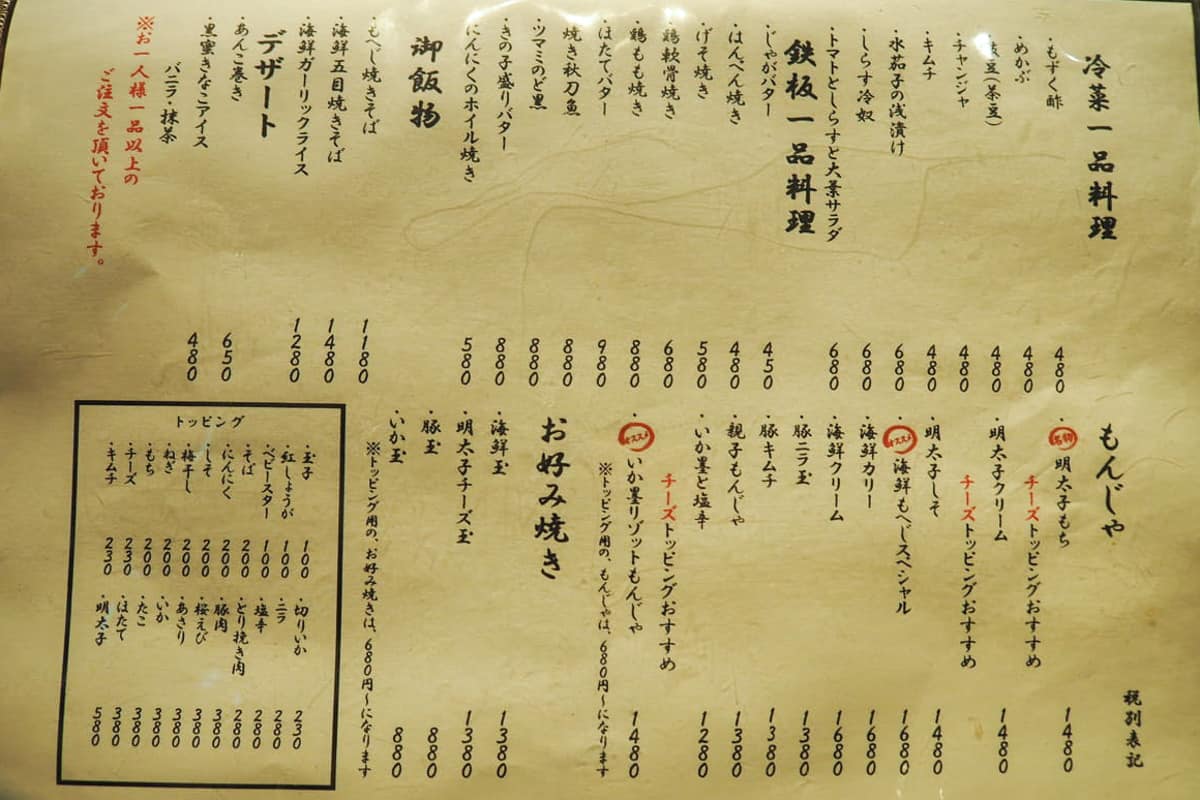 冷菜一品料理
・もずく酢 480
・めかぶ 480
豆(茶豆) 480
・チャンジャ 480
・キムチ 480
・水茄子の浅漬け 680
・しらす冷奴 680
・トマトとしらすと大葉サラダ 680
鉄板一品料理
・じゃがバター 450
・はんぺん焼き 480
・げそ焼き 580
・鶏軟骨焼き 680
・鶏もも焼き 880
・ほたてバター 980
・焼き秋刀魚 880
・ツマミのど黒 880
・きの子盛りバター 880
・にんにくのホイル焼き 580
御飯物
・もへじ焼きそば 1180
・海鮮五目焼きそば 1480
・海鮮ガーリックライス 1280
デザート
・あんこ巻き 650
・黒蜜きなこアイス 480
バニラ・抹茶
※お一人様一品以上の
ご注文を頂いております。
税別表記
もんじゃ
・名物 明太子もち 1480
チーズトッピングおすすめ
・明太子クリーム 1480
チーズトッピングおすすめ
・明太子しそ 1480
・オススメ 海鮮もへじスペシャル 1680
・海鮮カリー 1680
・海鮮クリーム 1680
・豚ニラ玉 1380
・豚キムチ 1380
・親子もんじゃ 1380
・いか墨と塩辛 1280
チーズトッピングおすすめ
・オススメ いか墨リゾットもんじゃ 1480
※トッピング用の、もんじゃは、680円〜になります
お好み焼き
・海鮮玉 1380
・明太子チーズ玉 1380
・豚玉 880
・いか玉 880
※トッピング用の、お好み焼きは、680円〜になります
トッピング
・玉子 100
・紅しょうが 100
・ベビースター 100
・そば 200
・にんにく 200
・しそ 200
・梅干し 200
・ねぎ 200
・もち 200
・チーズ 230
・キムチ 230
・切りいか 230
・ニラ 280
・塩辛 280
・とり挽き肉 280
・豚肉 380
・桜えび 380
・あさり 380
・いか 380
・たこ 380
・ほたて 380
・明太子 580